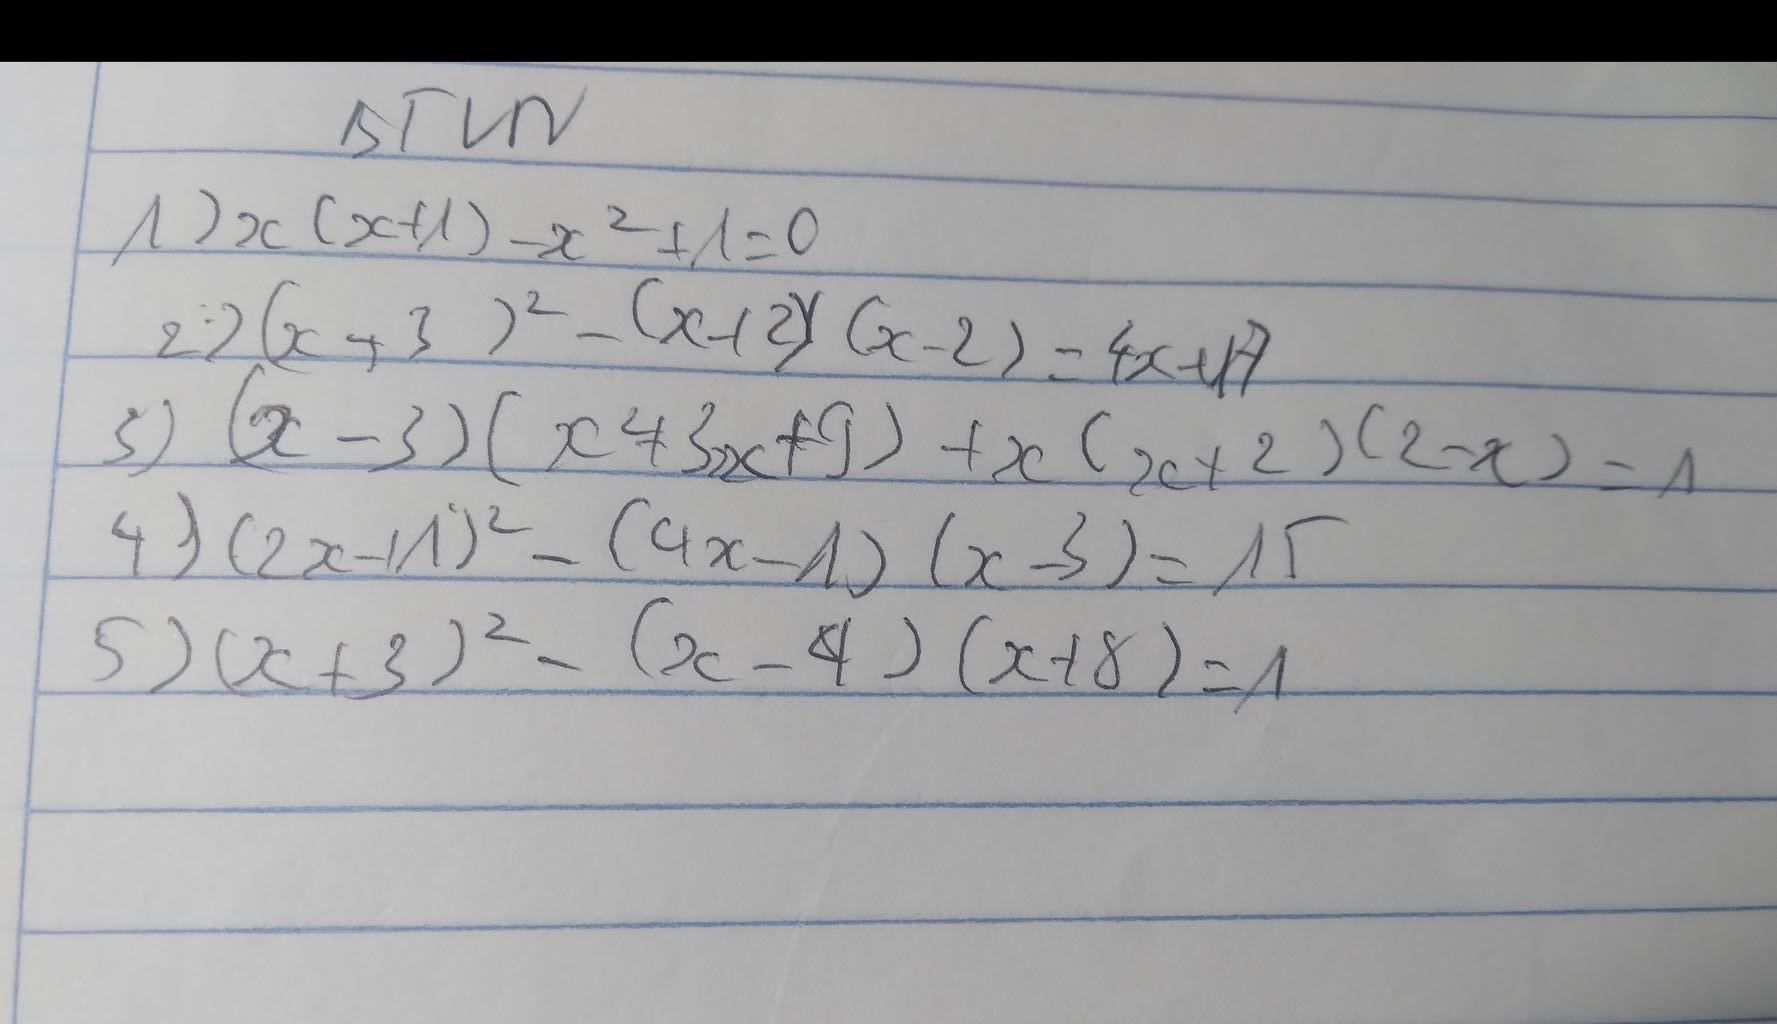 BTVN
1) x(x+1) - x² + 1 = 0
2) (x+3)² - (x+2)(x-2) = 4x+17
3) (x-3)(x²+3x+9) + x(x+2)(2-x) = 1
4) (2x+1)² - (4x-1)(x-3) = 15
5) (x+3)² - (x-4)(x+8) = 1